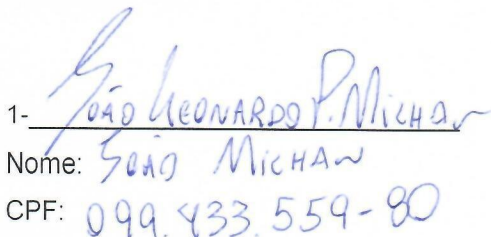 1- João Leonardo P. Michan
Nome: João Michan
CPF: 099.433.559-80